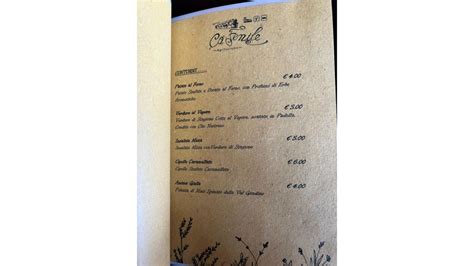 Ca' Senile
CONTORNI
Patate al Forno € 4.00
Patate Sbollite e Dorate al Forno, con Profumi di Erbe
Aromatiche
Verdure al Vapore € 5.00
Verdure di Stagione Cotte al Vapore,
Condite con Olio
Insalata Mista € 5.00
Insalata Mista con Verdure di Stagione
Cipolle Caramellate € 6.00
Cipolle Caramellate
Polenta Gialla € 4.00
Polenta di Mais Spinato della Val Gandino